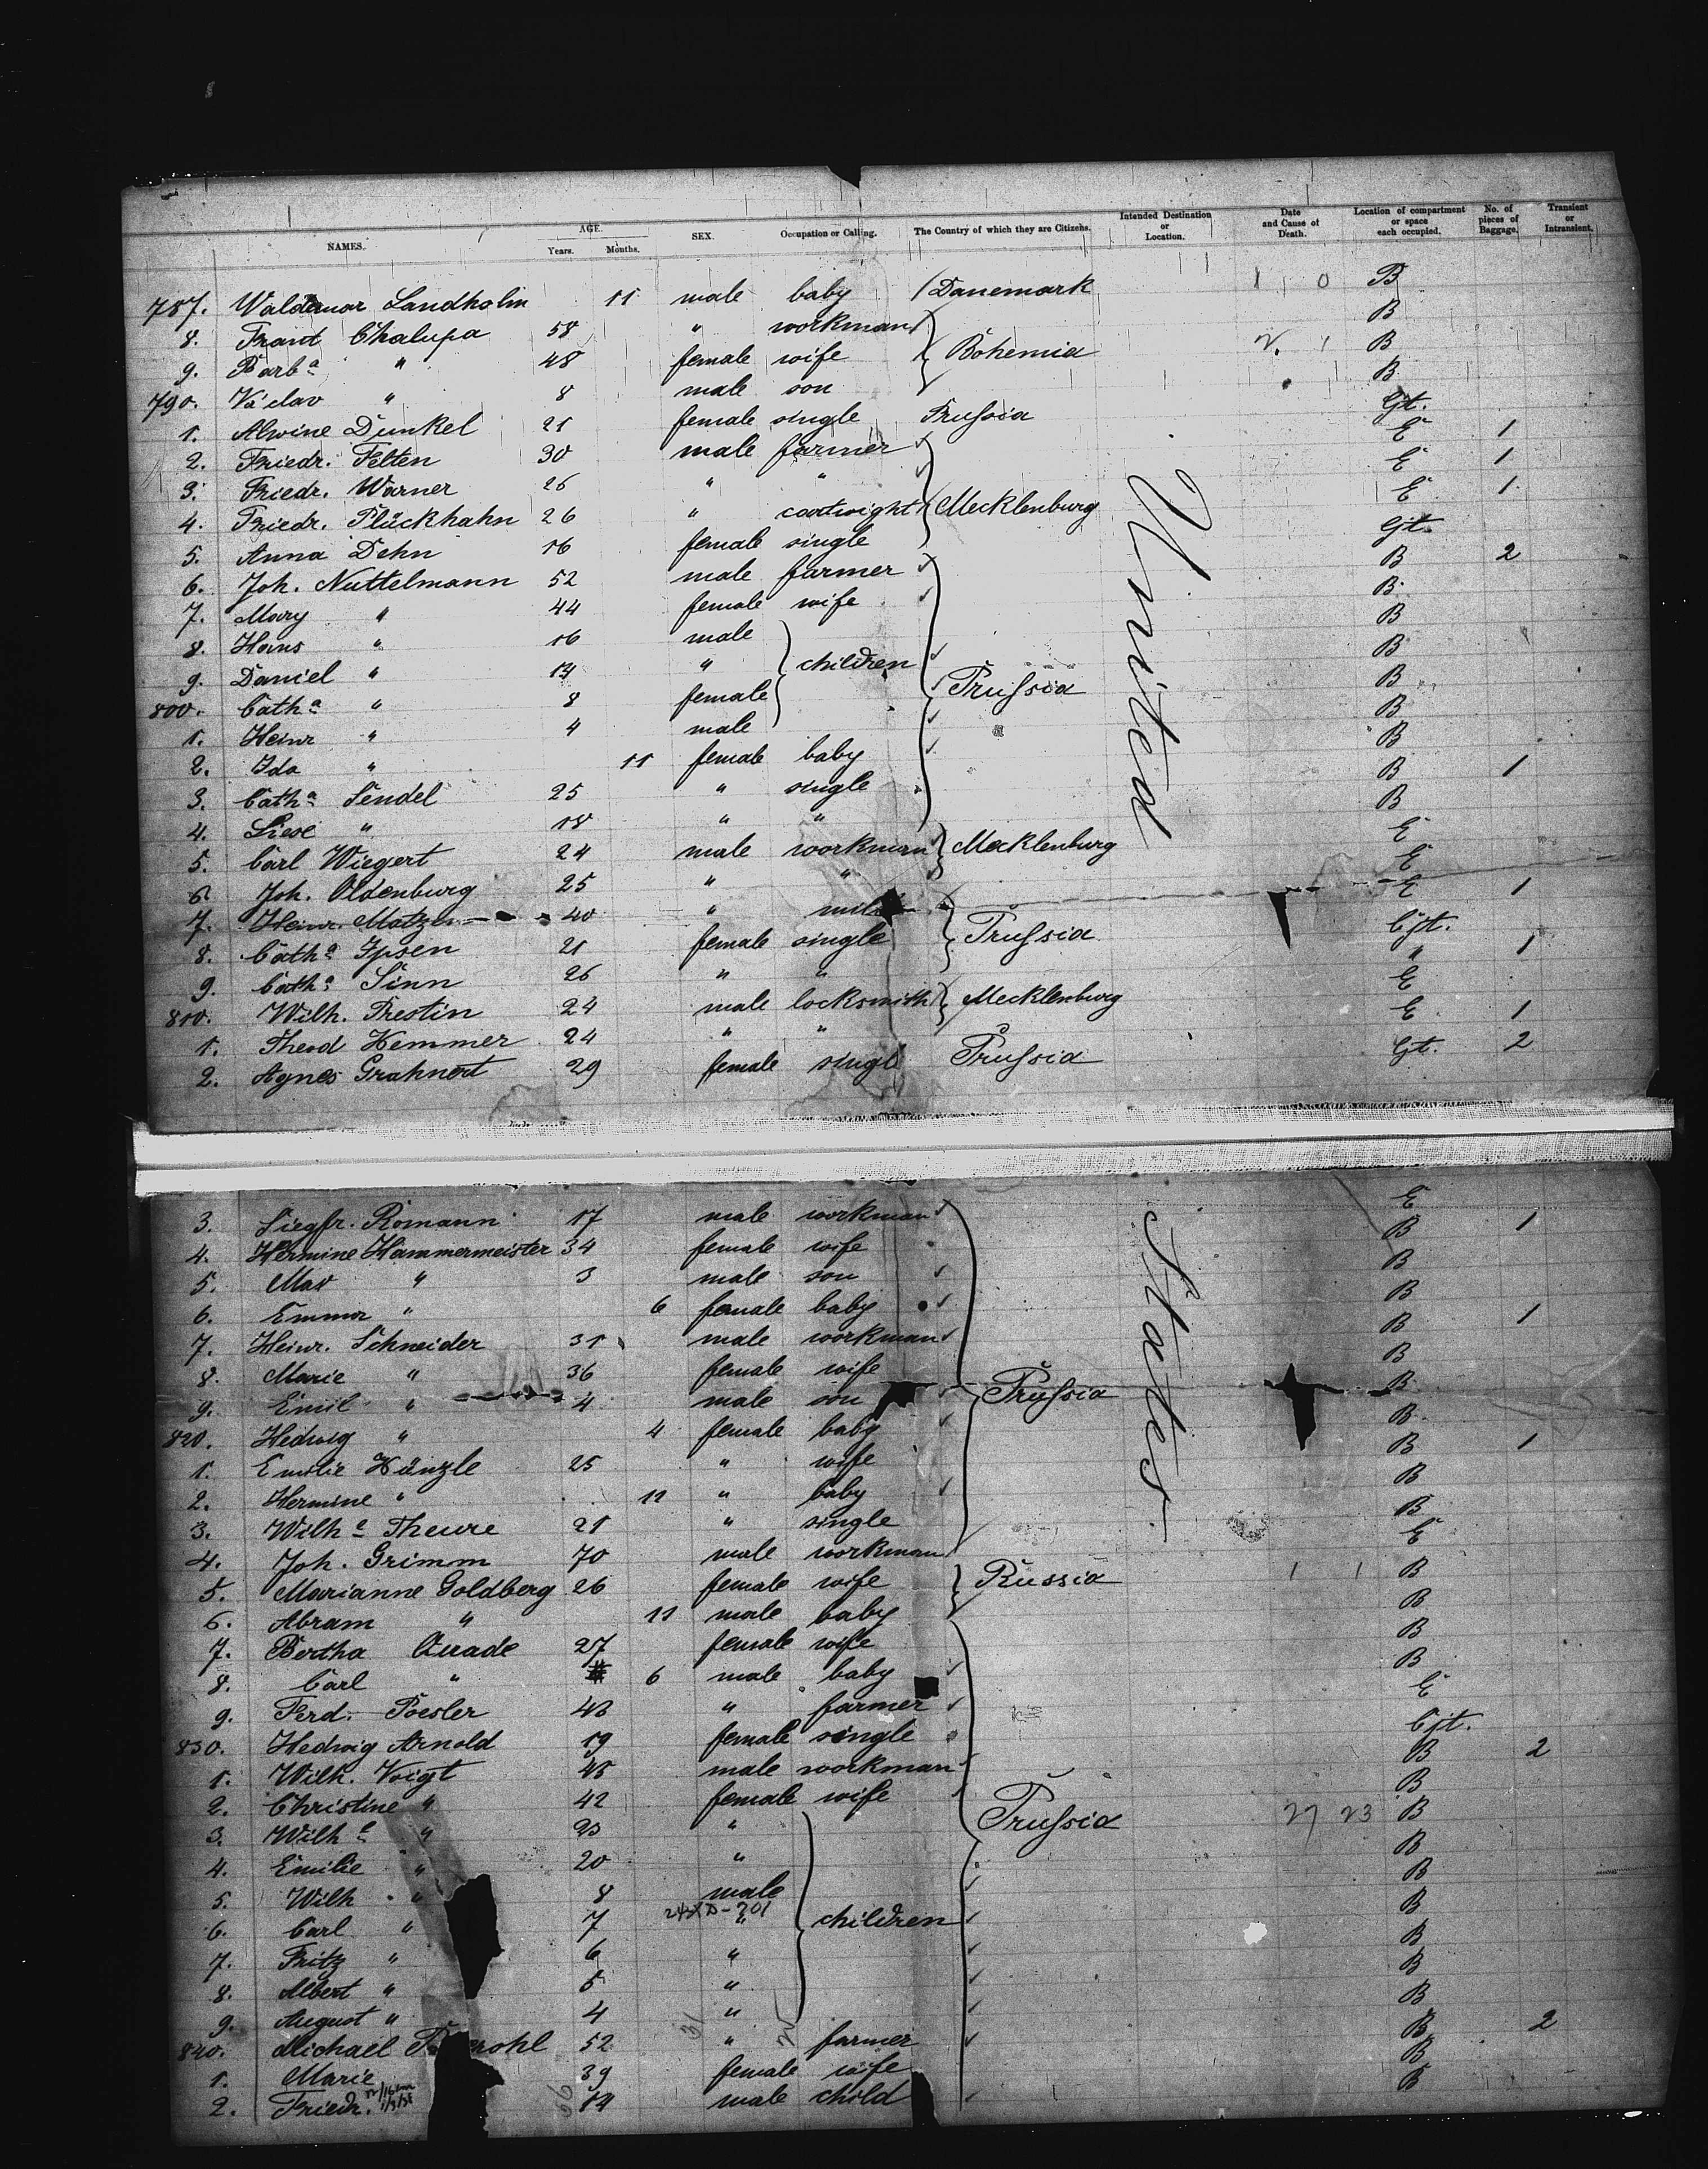 NAMES. AGE. Years. Months. SEX. Occupation or Calling. The Country of which they are Citizens. Intended Destination or Location. Date and Cause of Death. Location of compartment or space each occupied. No. of pieces of Baggage. Transient or Intransient.
787. Waldemar Landholm 11 male baby Danemark 1 0 B
8. Frant Chalupa 58 " workman B
9. Barbª " 48 female wife Bohemia 2 1 B
790. Václav " 8 male son B
1. Alwine Dunkel 21 female single Prussia Gjt.
2. Friedr. Felten 30 male farmer E 1
3. Friedr. Warner 26 " " E 1
4. Friedr. Plückhahn 26 " cartwight Mecklenburg E 1
5. Anna Dehn 16 female single Gjt.
6. Joh. Nuttelmann 52 male farmer B 2
7. Mary " 44 female wife B
8. Hans " 16 male B
9. Daniel " " children B
800. Cathª " 8 female Prussia B
1. Heinr " 4 male B
2. Ida " 11 female baby B
3. Cathª Sendel 25 " single B 1
4. Liese " 18 " " B
5. Carl Wiegert 24 male workman Mecklenburg E
6. Joh. Oldenburg 25 " " E
7. Heinr. Matzen 40 " E 1
8. Cathª Ipsen 21 female single Prussia Gjt.
9. Cathª Sinn 26 " " " 1
810. Wilh. Prestin 24 male locksmith Mecklenburg E
1. Theod Hemmer 24 " " E 1
2. Agnes Grahnert 29 female single Prussia Gjt. 2
United
3. Siegfr. Romann 17 male workman E
4. Hermine Hammermeister 34 female wife B 1
5. Max " 3 male son B
6. Emma " 6 female baby B
7. Heinr. Schneider 31 male workman B 1
8. Marie " 36 female wife B
9. Emil " 4 male son Prussia B
820. Hedwig " 4 female baby B
1. Emilie Hänzle 25 " wife B 1
2. Hermine " 11 " baby B
3. Wilhe Theure 21 " single B
4. Joh. Grimm 70 male workman E
5. Marianne Goldberg 26 female wife Russia 1 1 B
6. Abram " 11 male baby B
7. Bertha Quade 27 female wife B
8. Carl " 6 male baby B
9. Ferd. Poesler 48 " farmer E
830. Hedwig Arnold 19 female single Gjt.
1. Wilh. Voigt 45 male workman B 2
2. Christine " 42 female wife B
3. Wilhe " " Prussia 27 23 B
4. Emilie " 20 " B
5. Wilh " 8 male B
6. Carl " 7 " children B
7. Fritz " 6 " B
8. Albert " 5 " B
9. August " 4 " B
840. Michael 52 " farmer B 2
1. Marie 39 female wife B
2. Friedr. 14 male child B
States